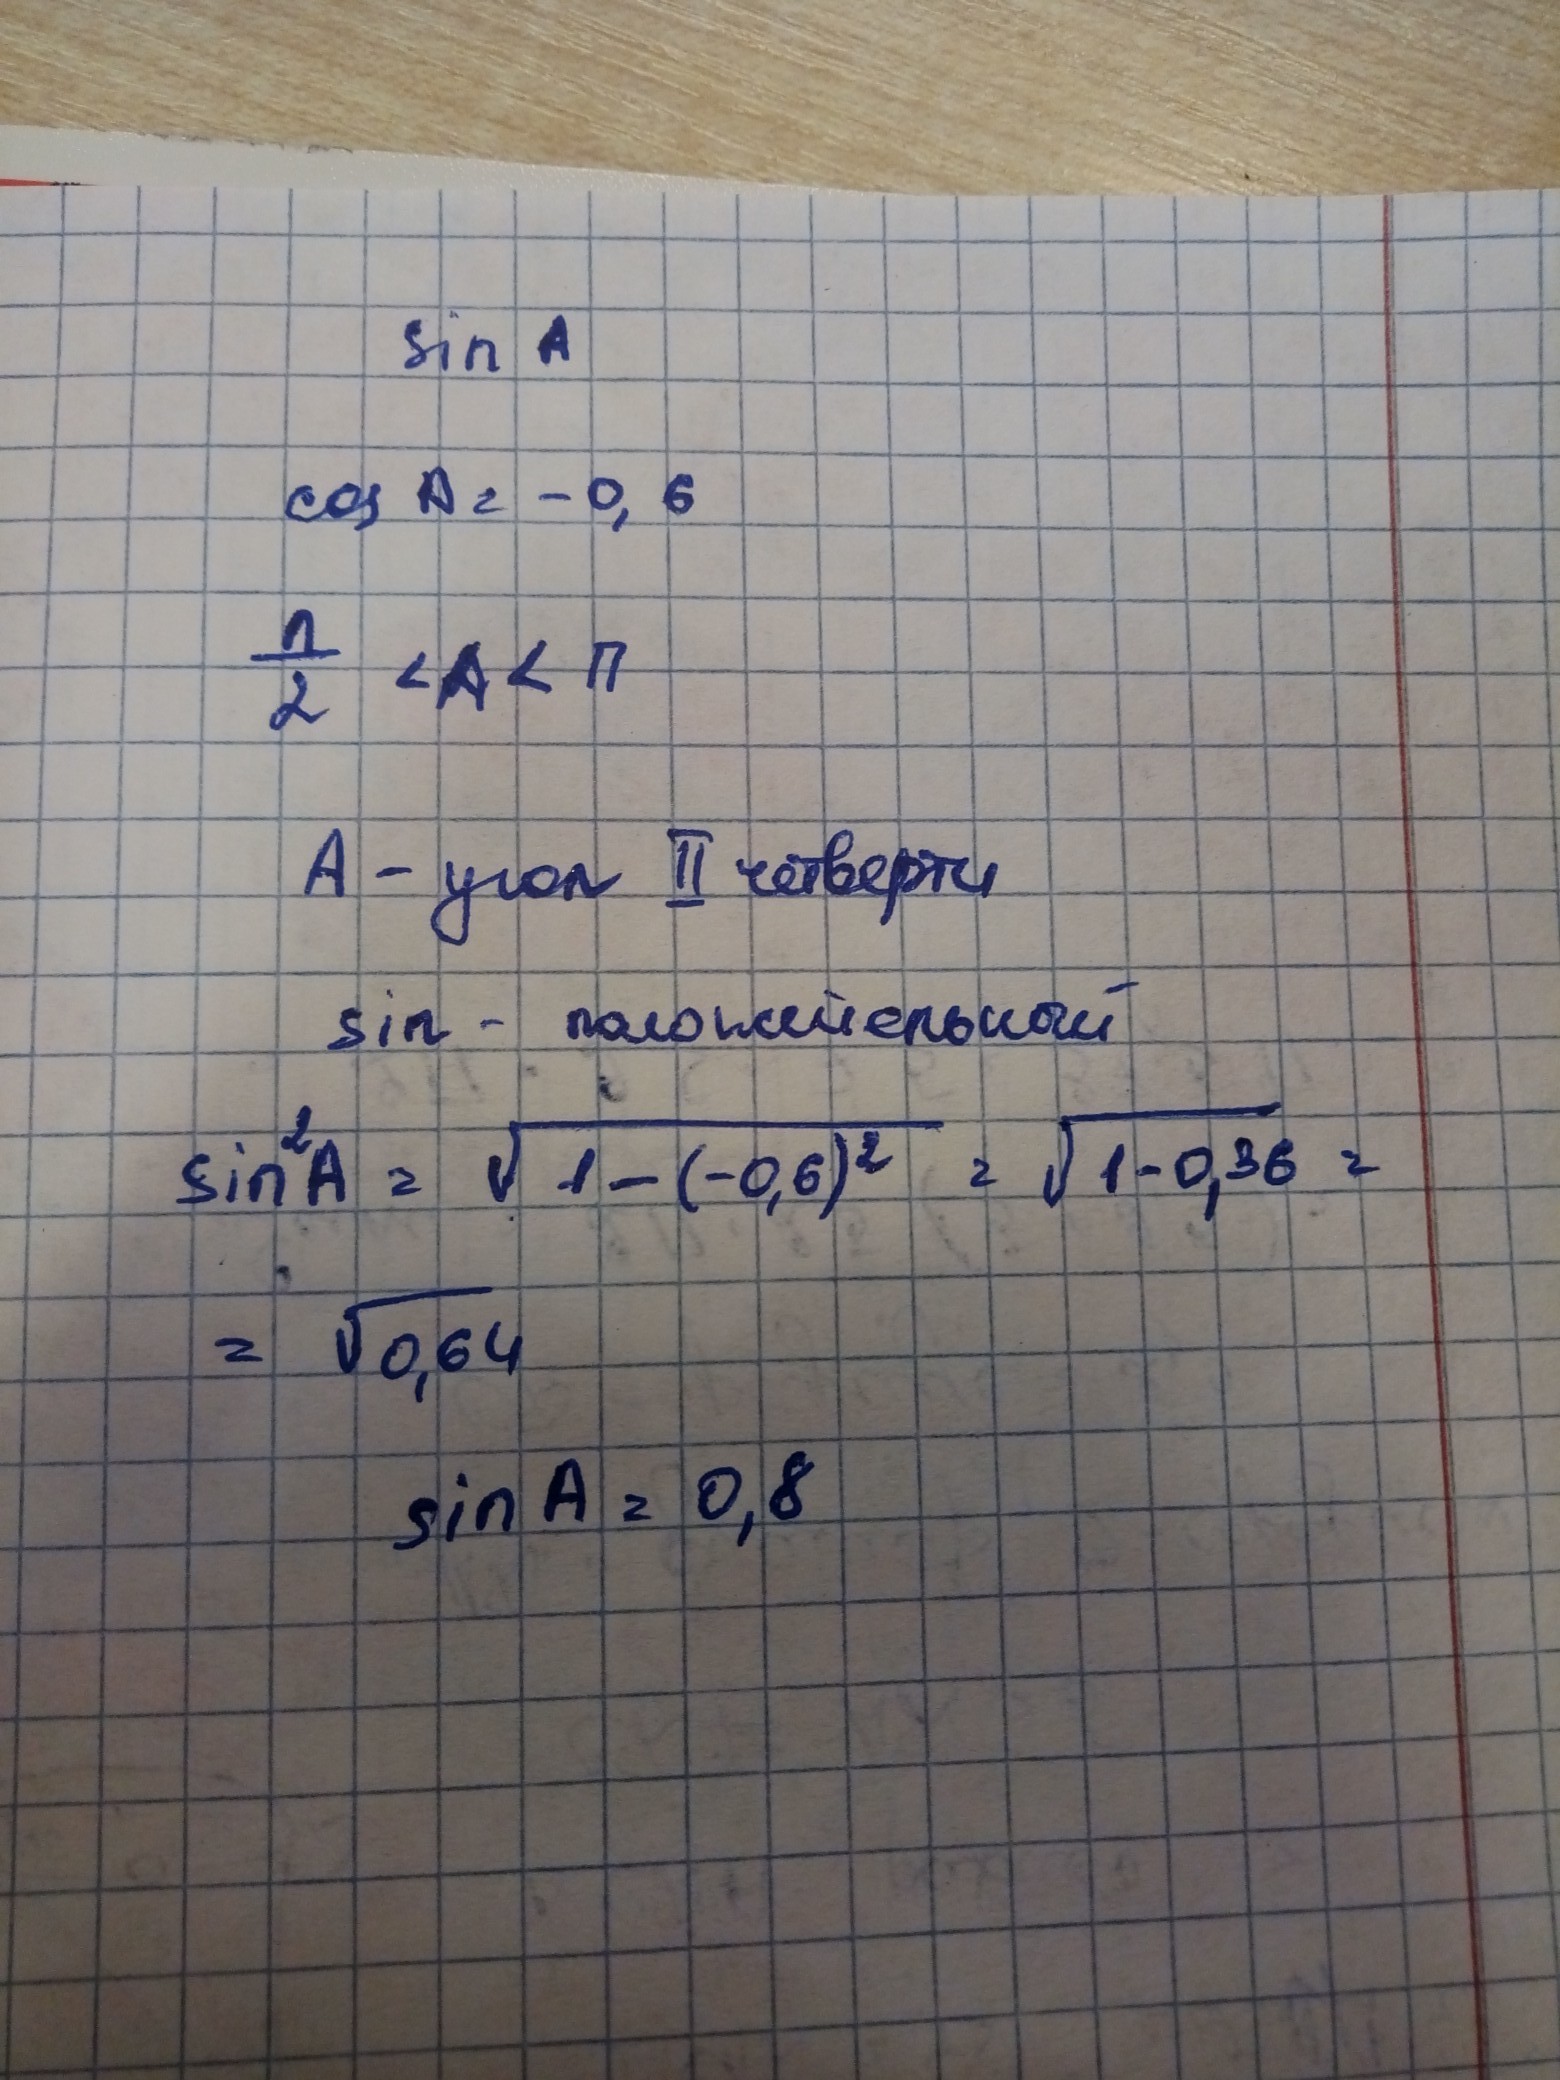 sin A
cos A = -0,6
п/2 < A < П
A - угол II четверти
sin - положительный
sin²A = √(1-(-0,6)²) = √(1-0,36) =
= √0,64
sin A = 0,8